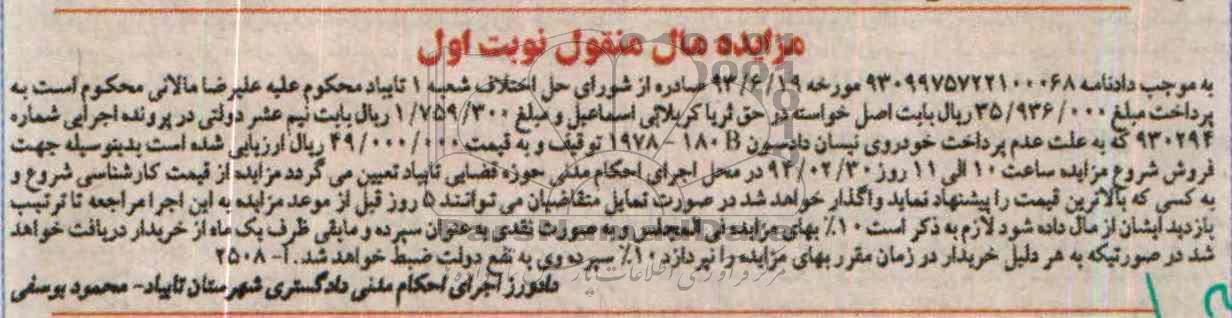 مزایده مال منقول نوبت اول
به موجب دادنامه ۹۳۰۹۹۷۵۷۲۲۱۰۰۰۶۸ مورخه ۹۳/۶/۱۹ صادره از شورای حل اختلاف شعبه ۱ تایباد محکوم علیه علیرضا مالانی محکوم است به
پرداخت مبلغ ۳۵/۹۳۶/۰۰۰ ریال بابت اصل خواسته در حق ثریا کربلایی اسماعیل و مبلغ ۱/۷۵۹/۳۰۰ ریال بابت نیم عشر دولتی در پرونده اجرایی شماره
۹۳۰۲۹۴ که به علت عدم پرداخت خودروی نیسان دادسون 180B - ۱۹۷۸ توقیف و به قیمت ۴۹/۰۰۰/۰۰۰ ریال ارزیابی شده است بدینوسیله جهت
فروش شروع مزایده ساعت ۱۰ الی ۱۱ روز ۹۴/۰۲/۳۰ در محل اجرای احکام مدنی حوزه قضایی تایباد تعیین می گردد مزایده از قیمت کارشناسی شروع و
به کسی که بالاترین قیمت را پیشنهاد نماید واگذار خواهد شد در صورت تمایل متقاضیان می توانند ۵ روز قبل از موعد مزایده به این اجرا مراجعه تا ترتیب
بازدید ایشان از مال داده شود لازم به ذکر است ۱۰٪ بهای مزایده فی المجلس و به صورت نقدی به عنوان سپرده و مابقی ظرف یک ماه از خریدار دریافت خواهد
شد در صورتیکه به هر دلیل خریدار در زمان مقرر بهای مزایده را نپردازد ۱۰٪ سپرده وی به نفع دولت ضبط خواهد شد. آ- ۲۵۰۸
دادورز اجرای احکام مدنی دادگستری شهرستان تایباد- محمود یوسفی